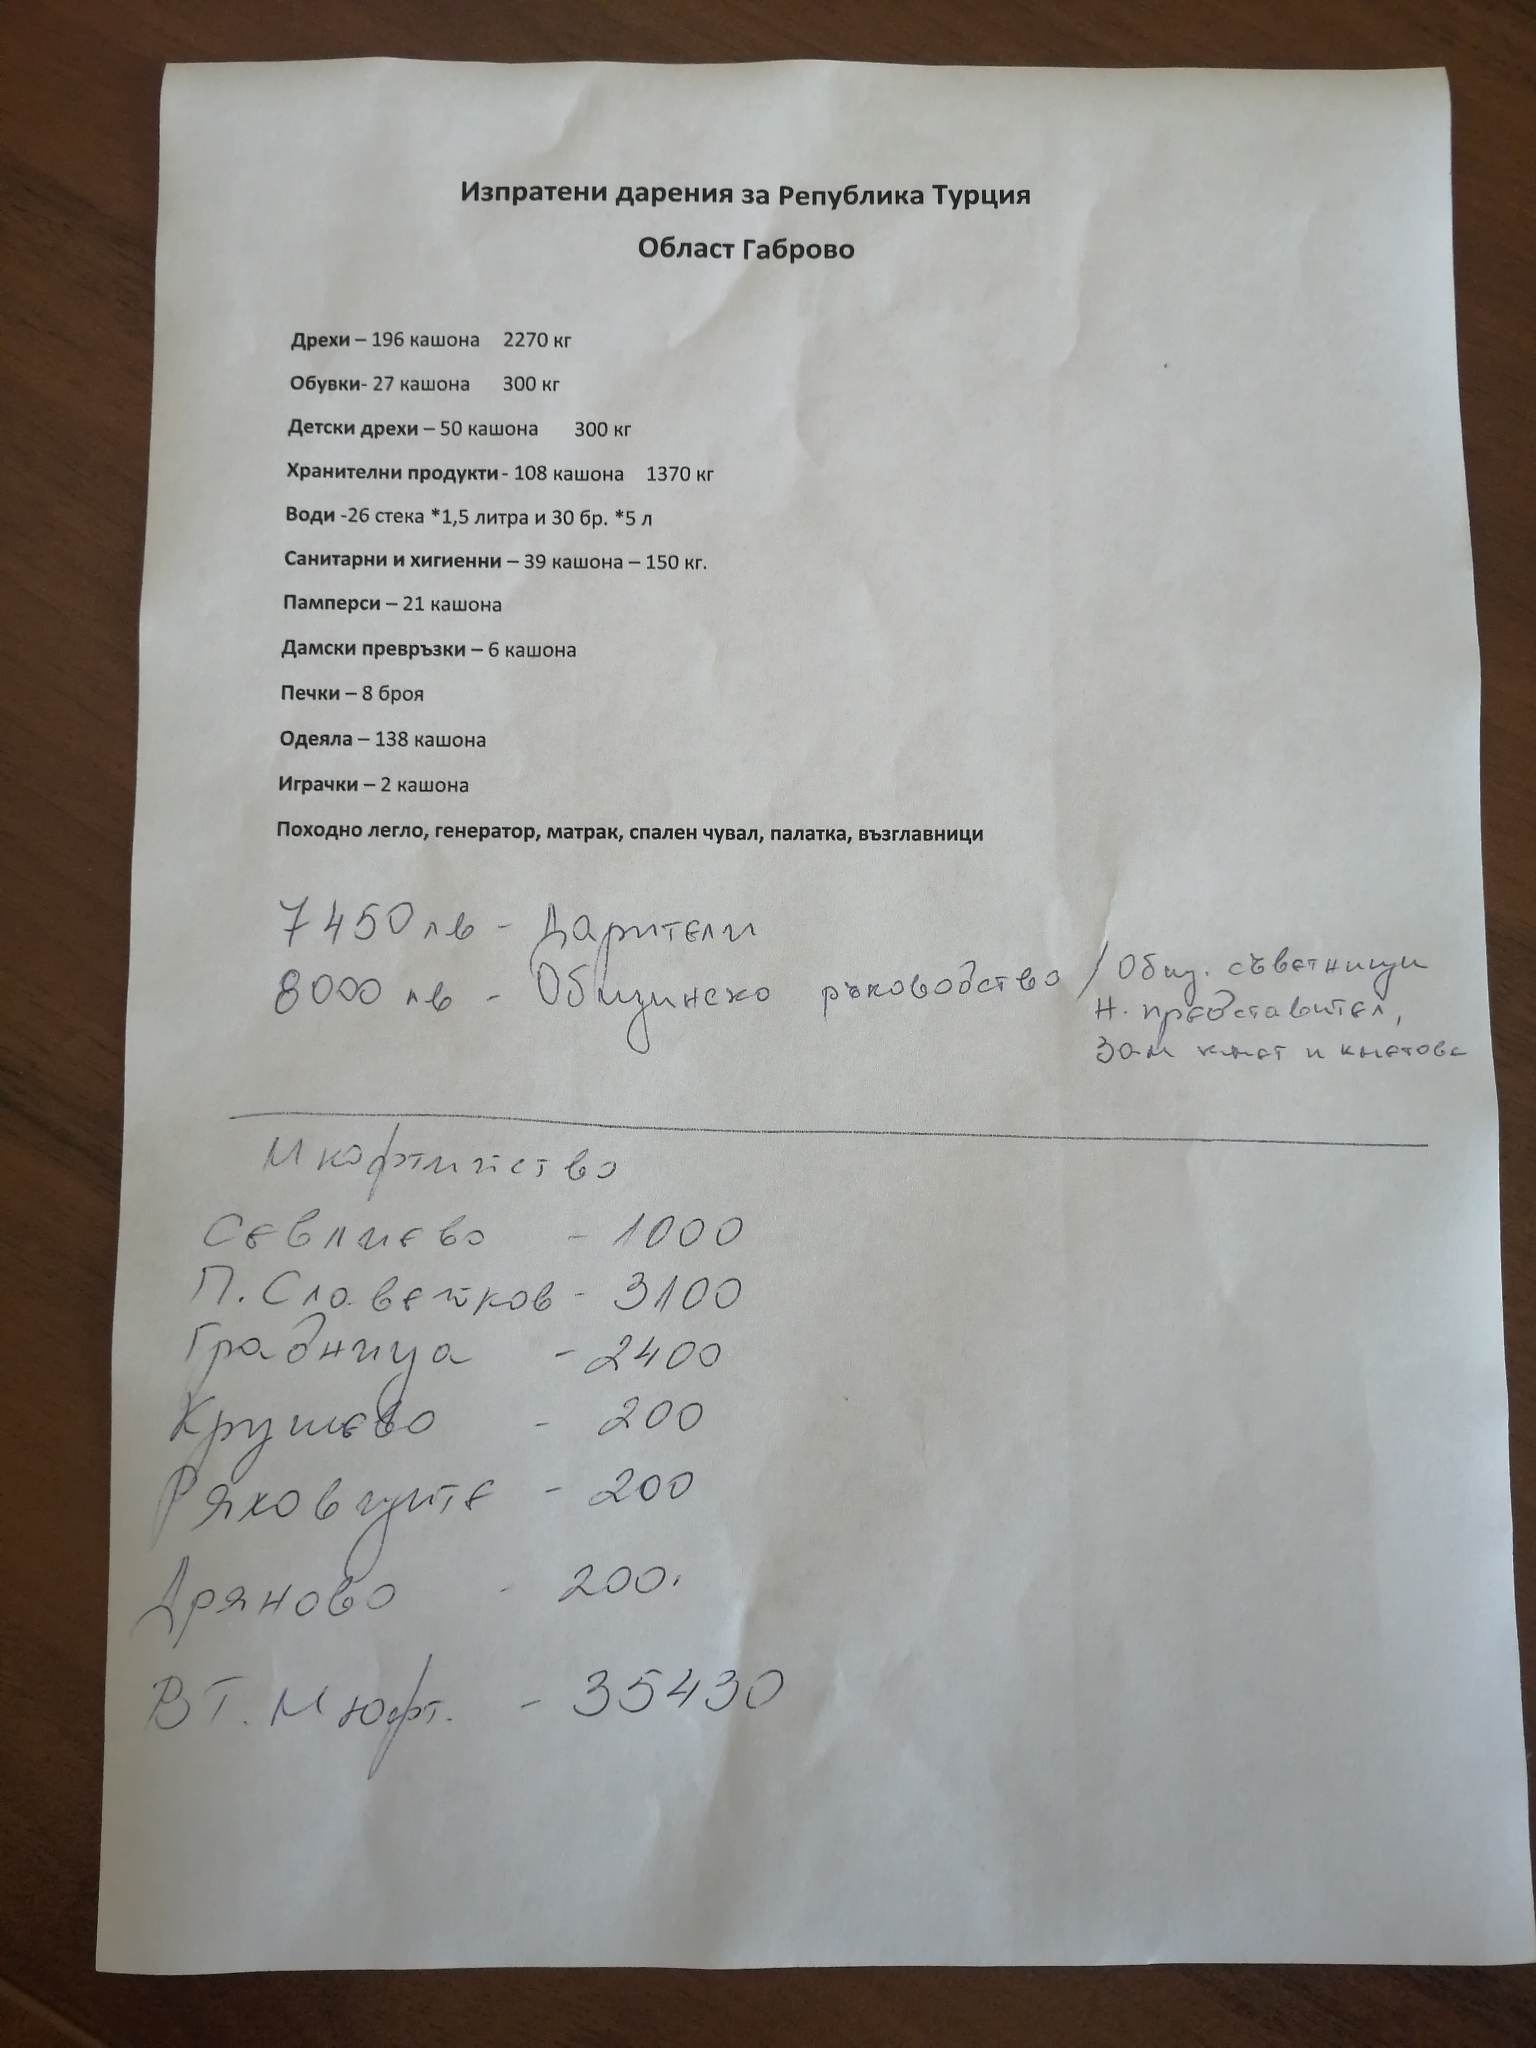 Изпратени дарения за Република Турция
Област Габрово
Дрехи – 196 кашона 2270 кг
Обувки- 27 кашона 300 кг
Детски дрехи – 50 кашона 300 кг
Хранителни продукти- 108 кашона 1370 кг
Води -26 стека *1,5 литра и 30 бр. *5 л
Санитарни и хигиенни – 39 кашона – 150 кг.
Памперси – 21 кашона
Дамски превръзки – 6 кашона
Печки – 8 броя
Одеяла – 138 кашона
Играчки – 2 кашона
Походно легло, генератор, матрак, спален чувал, палатка, възглавници
7450 лв - Дарители
8000 лв - Общинско ръководство / Общ. съветници
Н. представител,
Зам кмет и кметове
Мюфтийство
Севлиево - 1000
П. Славейков - 3100
Градница - 2400
Крушево - 200
Ряховците - 200
Дряново - 200.
ВТ. Мюфт. - 35430